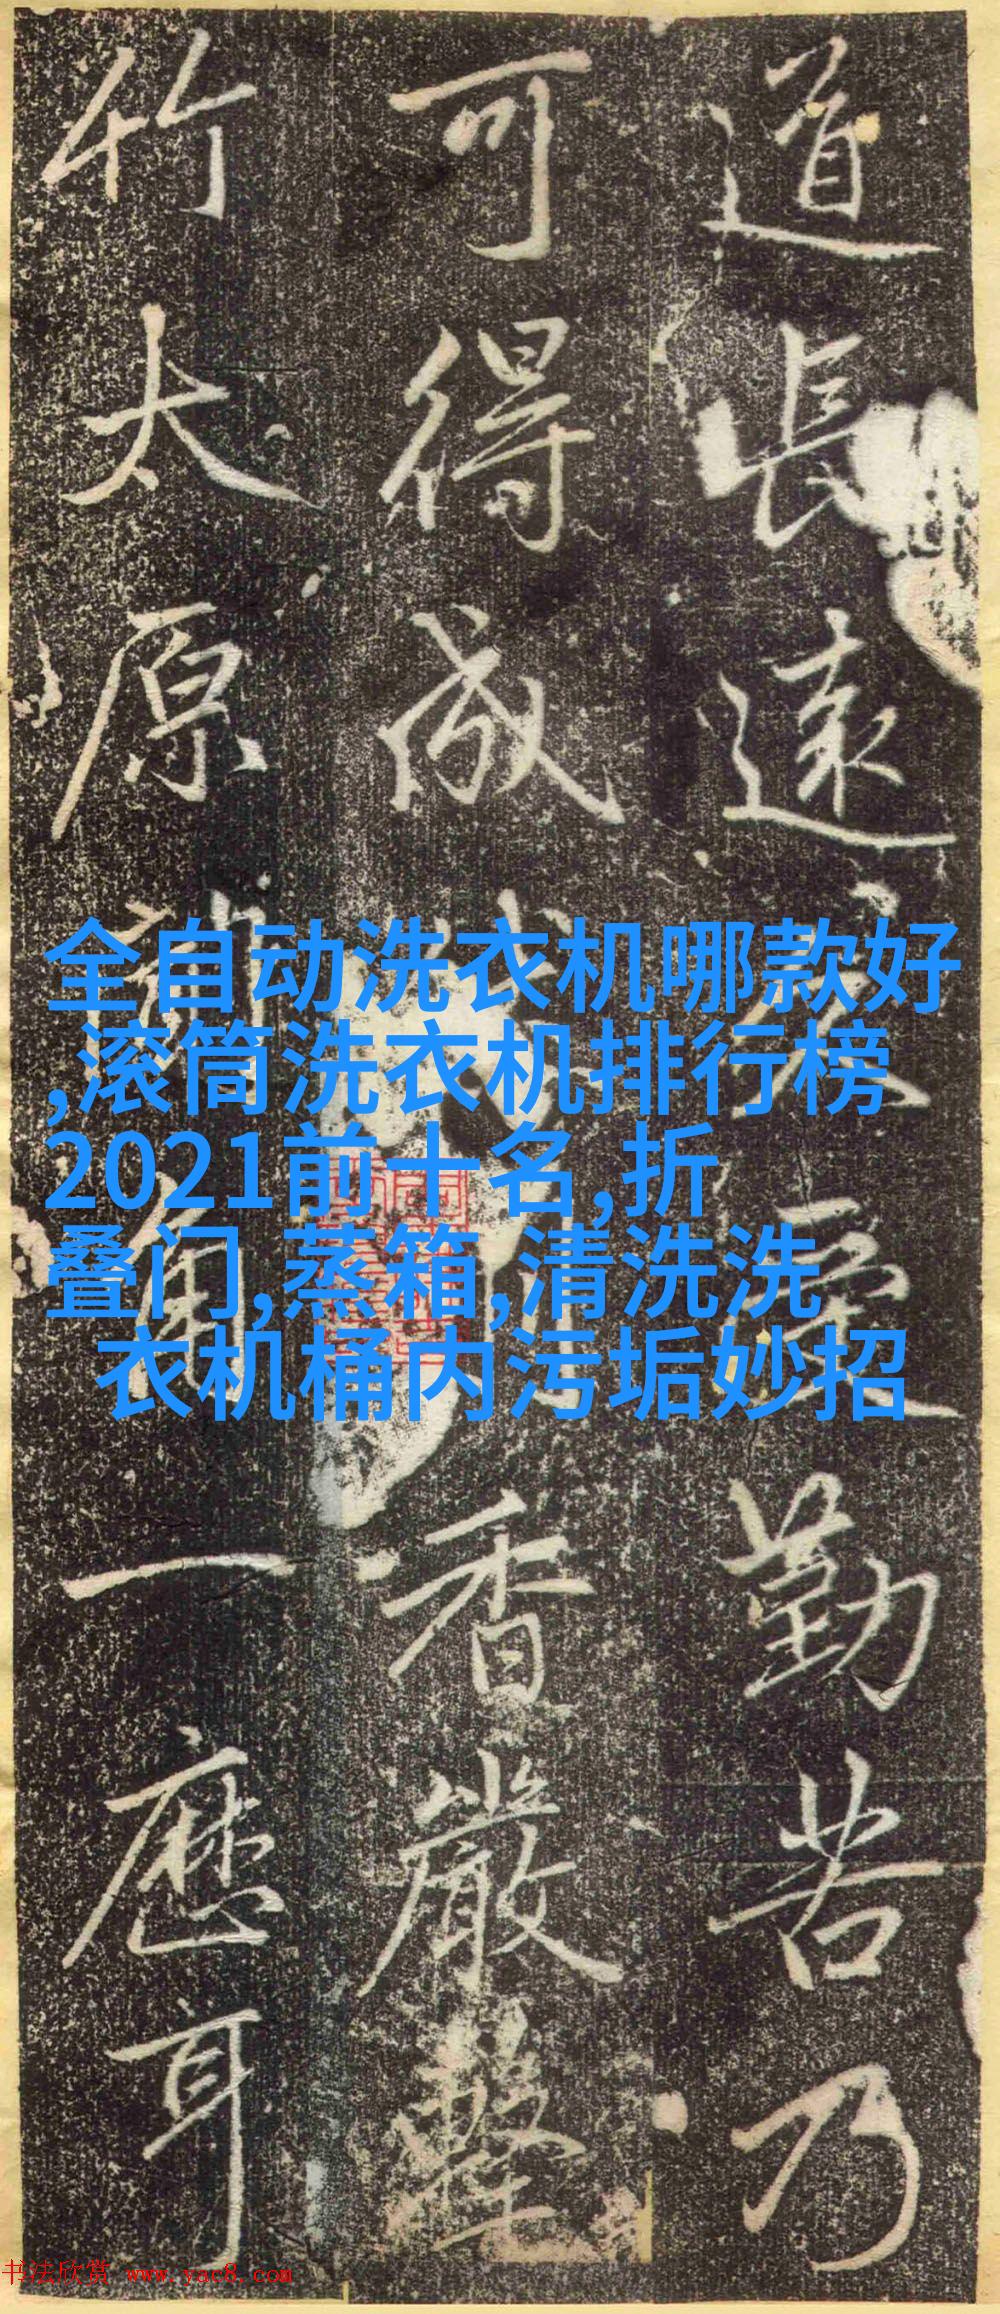 道長遠受勤苦乃
可得成香嚴擊
竹太原角一應耳
全自动洗衣机哪款好
,滚筒洗衣机排行榜
2021前十名,折
叠门,蒸箱,清洗洗
衣机桶内污垢妙招
书法欣赏 www.yac8.com